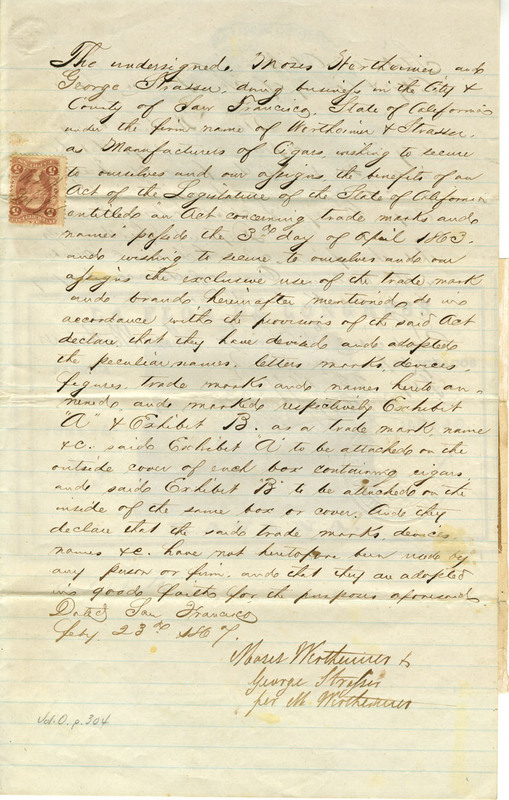 The undersigned, Moses Wertheimer and
George Strasser, doing business in the City &
County of San Francisco, State of California
under the firm name of Wertheimer & Strasser,
as Manufacturers of Cigars, wishing to secure
to ourselves and our assigns the benefits of an
Act of the Legislature of the State of California
entitled "an Act concerning trade marks and
names" passed the 3rd day of April 1863.
and wishing to secure to ourselves and our
assigns the exclusive use of the trade mark
and brands hereinafter mentioned do in
accordance with the provisions of the said Act
declare that they have devised and adopted
the peculiar names, letters marks, devices,
figures, trade marks and names hereto an-
nexed and marked respectively Exhibit
"A" & Exhibit B. as a trade mark, name
&c. said Exhibit "A" to be attached on the
outside cover of each box containing cigars
and said Exhibit "B" to be attached on the
inside of the same box or cover. And they
declare that the said trade marks, devices
names &c. have not heretofore been used by
any person or firm, and that they are adopted
in good faith for the purposes aforesaid
Dated San Francisco
Feby. 23rd 1867.
Moses Wertheimer &
George Strasser
per M Wertheimer
Vol. O. p. 304